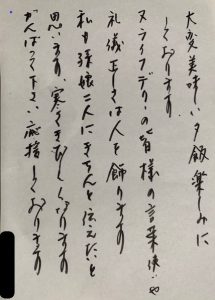 大変美味しい夕飯楽しみに
しております
スライフデリの皆様の言葉使いや
礼儀正しくは人を飾ります
私も孫娘二人にきちんと伝えたいと
思います、寒さきびしくなります
がんばって下さい応援しております